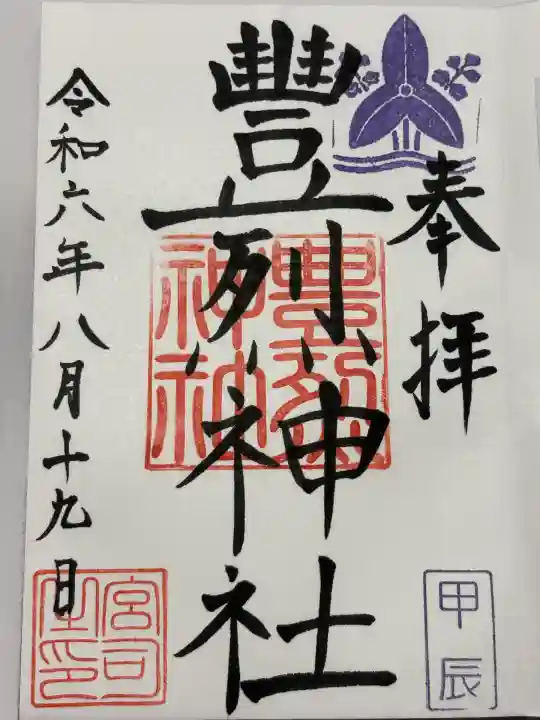 奉拝
豐烈神社
令和六年八月十九日
豊烈
神社
宮司
之印
甲辰